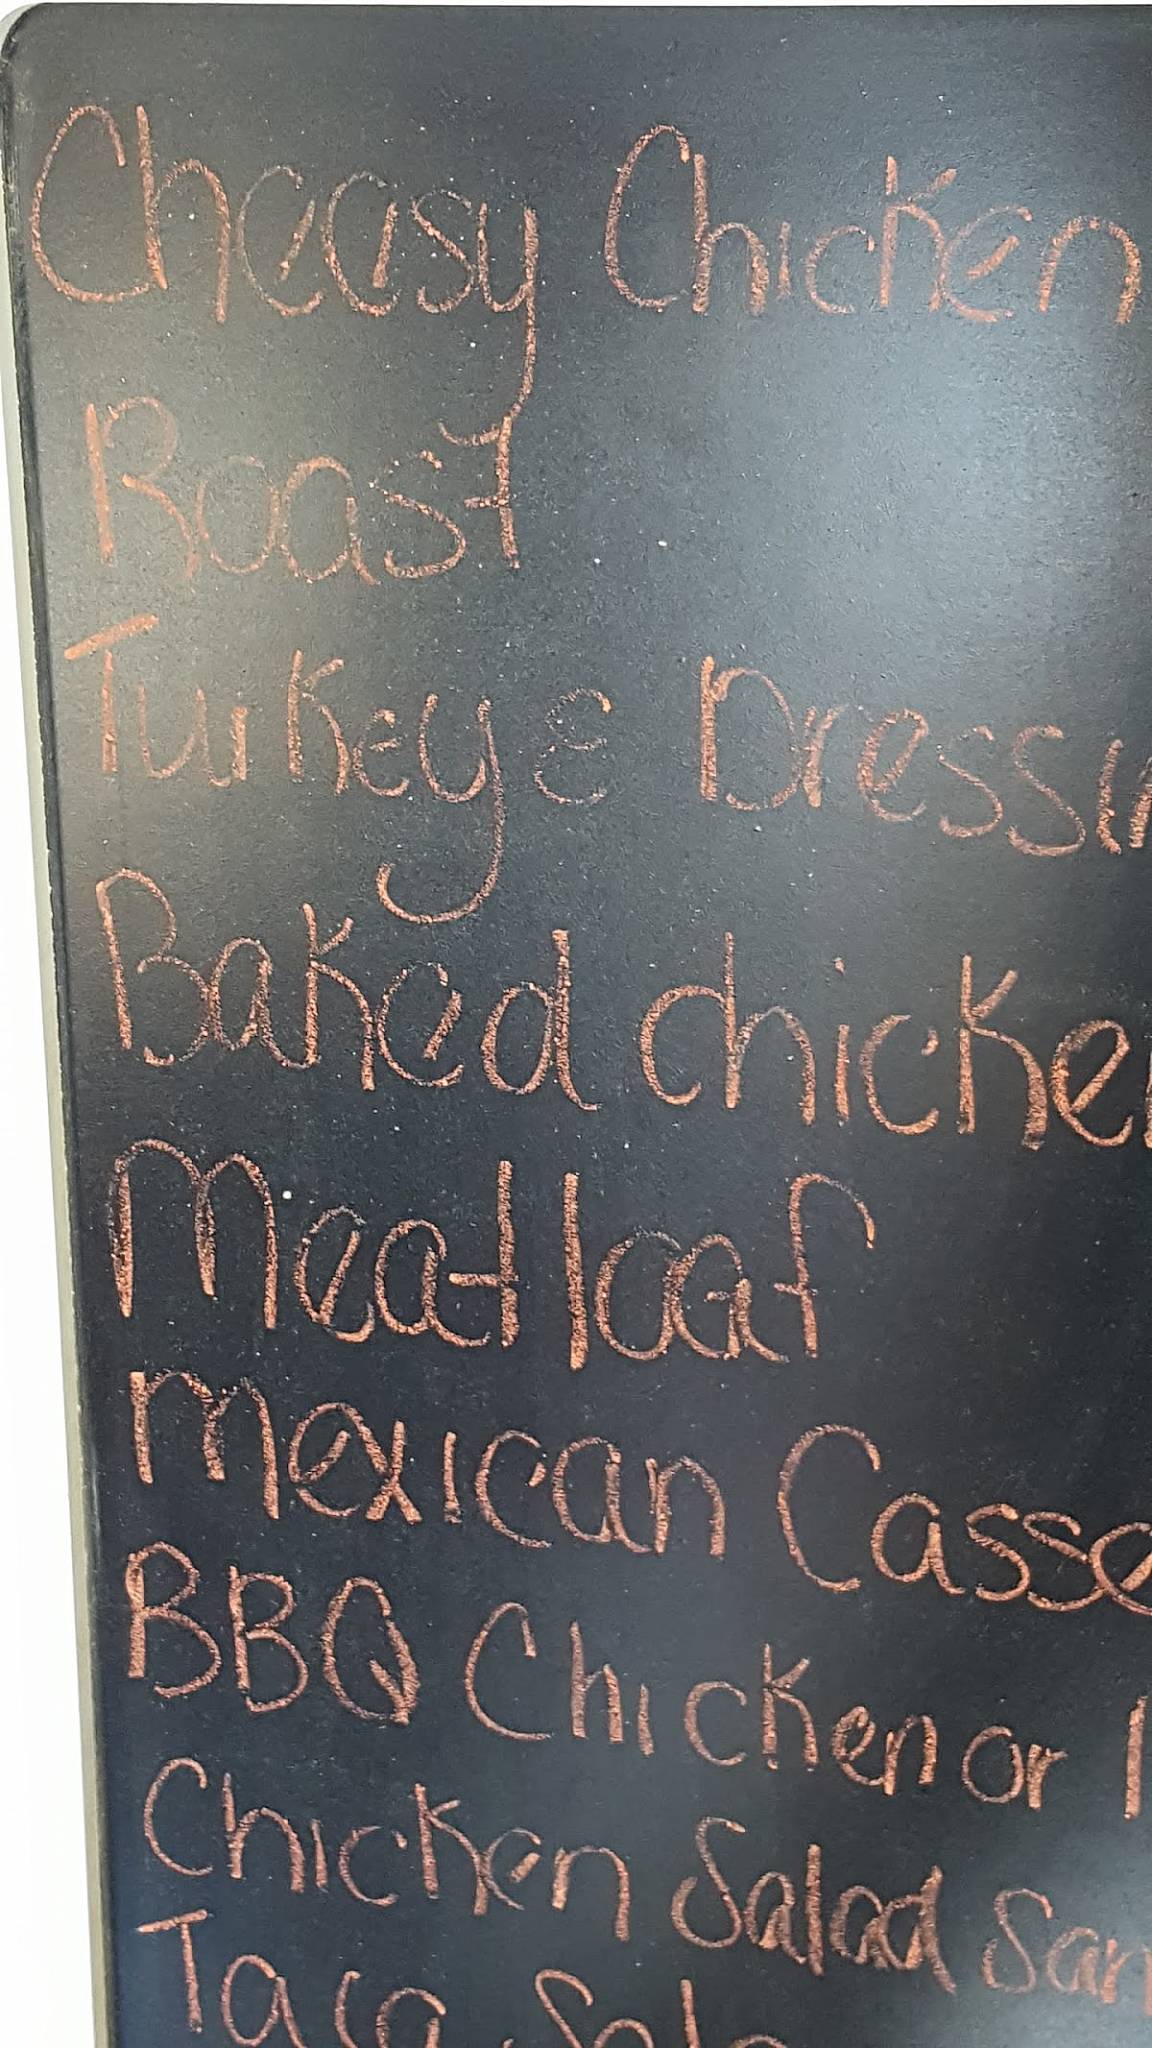 Cheesy Chicken
Roast
Turkey & Dressin
Baked chicken
Meatloaf
Mexican Casse
BBQ Chicken or
Chicken Salad San
Taco Sala